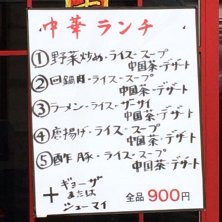 中華ランチ
①野菜炒め・ライス・スープ
中国茶・デザート
②回鍋肉・ライス・スープ
中国茶・デザート
③ラーメン・ライス・ザーサイ
中国茶・デザート
④唐揚げ・ライス・スープ
中国茶・デザート
⑤酢豚・ライス・スープ
中国茶・デザート
+
ギョーザ
または
シューマイ
全品900円